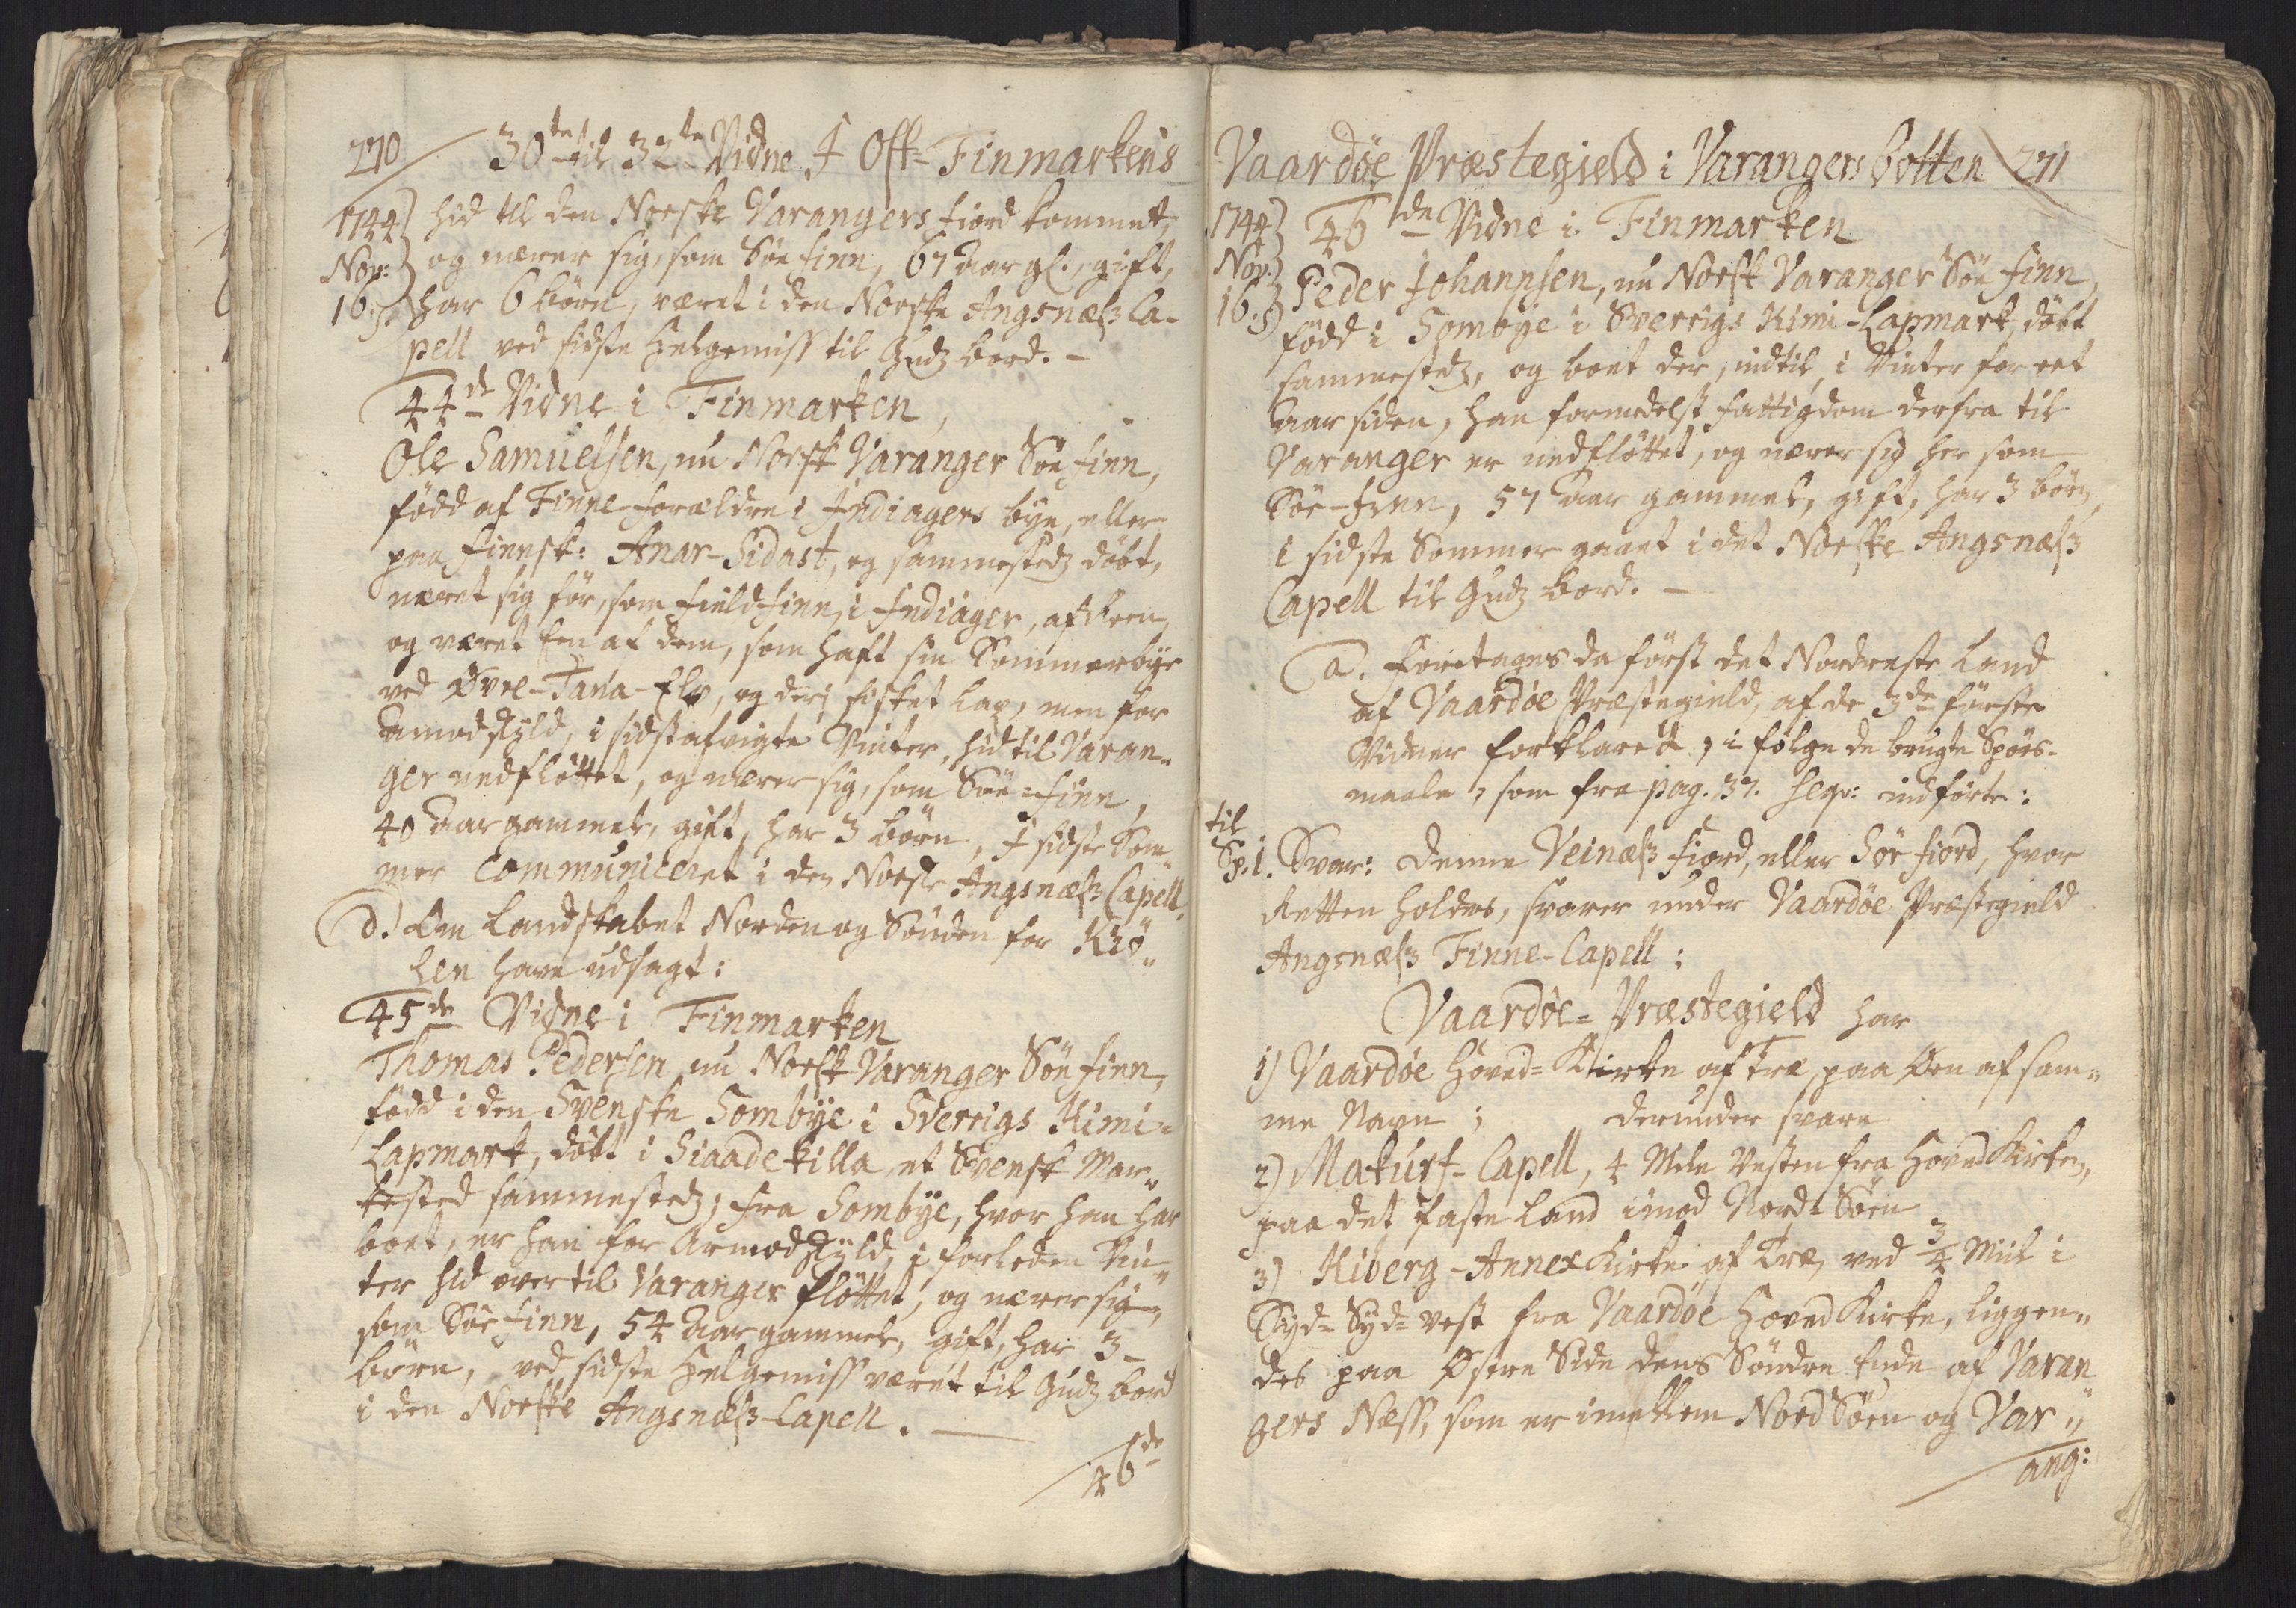 270 30te til 32te Vidne J Ost-Finmarkens
1744 hid til den Norske Varangers fiord kommet,
Nov: og nærer sig, som Söe finn, 67 aar gl., gift,
16. har 6 börn, været i den Norske Angsnæss Ca-
pell ved sidste Helgemiss til Gudz bord. -
44de Vidne i Finmarken,
Ole Samuelsen, nu Norsk Varanger Söe finn,
född af Finne-forældre i Indiagers bye, eller
paa finnsk: Anar-Sidast, og sammestedz döbt,
næret sig för, som fieldfinn, i Indiager, af Reen,
og været een af dem, som haft sin Sommerbye
ved Øvre-Tana-Elv, og deri fisket Lax, men for
armodskyld, i sidstafvigte Vinter, hid til Varan-
ger nedflöttet, og nærer sig, som Söe-finn,
40 aar gammel, gift, har 3 börn, I sidste Som-
mer Communiceret i den Norske Angsnæss Capell.
d. Om Landskabet Norden og Sönden for Kiö-
len have udsagt:
45de Vidne i Finmarken
Thomas Pedersen nu Norsk Varanger Söe finn,
född i den Svenske Sombÿe i Sverrigs Kimi-
Lapmark, döbt i Siaadekilla et Svensk Mar-
kested sammestedz; fra Sombÿe, hvor han har
boet, er han for Armodskyld, i forleden Vin-
ter hid over til Varanger flöttet, og nærer sig,
som Söe finn, 54 aar gammel, gift, har 3
börn, ved sidste Helgemiss været til Gudz bord
i den Norske Angsnæss-Capell.
46de
Vaardöe Præstegield i Varangersbotten 271
1744 46de Vidne i Finmarken
Nov: Peder Johannsen, nu Norsk Varanger Söe finn,
16. född i Sombÿe i Sverrigs Kimi-Lapmark, döbt
sammestedz, og boet der, indtil, i Vinter for eet
aar siden, han formedelst fattigdom derfra til
Varanger er nedflöttet, og nærer sig her som
Söe-finn, 57 aar gammel, gift, har 3 börn,
i sidste Sommer gaaet i det Norske Angsnæss
Capell til Gudz bord. -
a. Foretages da först det Nordreste Land
af Vaardöe Præstegield, af de 3de förste
Vidner forklaret, i fölge de brugte Spörs-
maale, som fra pag. 37. seqv: indförte:
til
Sp. 1. Svar: Denne Veinæss fiord, eller Sör fiord, hvor
Retten holdes, svarer under Vaardöe Præstegield
Angsnæss Finne-Capell:
Vaardöe-Præstegield har
1) Vaardöe Hoved-Kirke af Træ, paa Öen af sam-
me Navn; derunder svare
2) Makurs-Capell, 4 Mile Vesten fra Hoved Kirken,
paa det faste Land imod Nord-Söen
3) Kiberg-Annex Kirke af Træ, ved 3/4 Miil i
Syd-Syd-Vest fra Vaardöe Hoved Kirke, liggen-
des paa Østre Side dens Söndre Ende af Varan
gers Næss, som er imellem Nord Söen og Var-
ang: